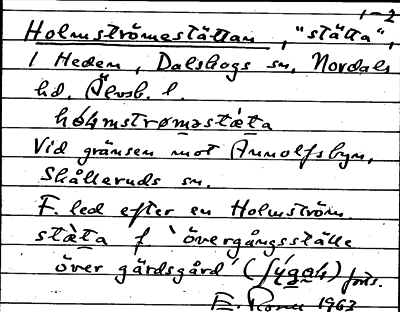 1-2
Holmströmestättan, "stätta",
i Heden, Dalskogs sn, Nordals
hd. Älvsb. l.
hólmstrøməstæ̀ta
Vid gränsen mot Arnolfsbyn,
Skålleruds sn.
F. led efter en Holmström.
stæ̀ta f 'övergångsställe
över gärdsgård'
1963